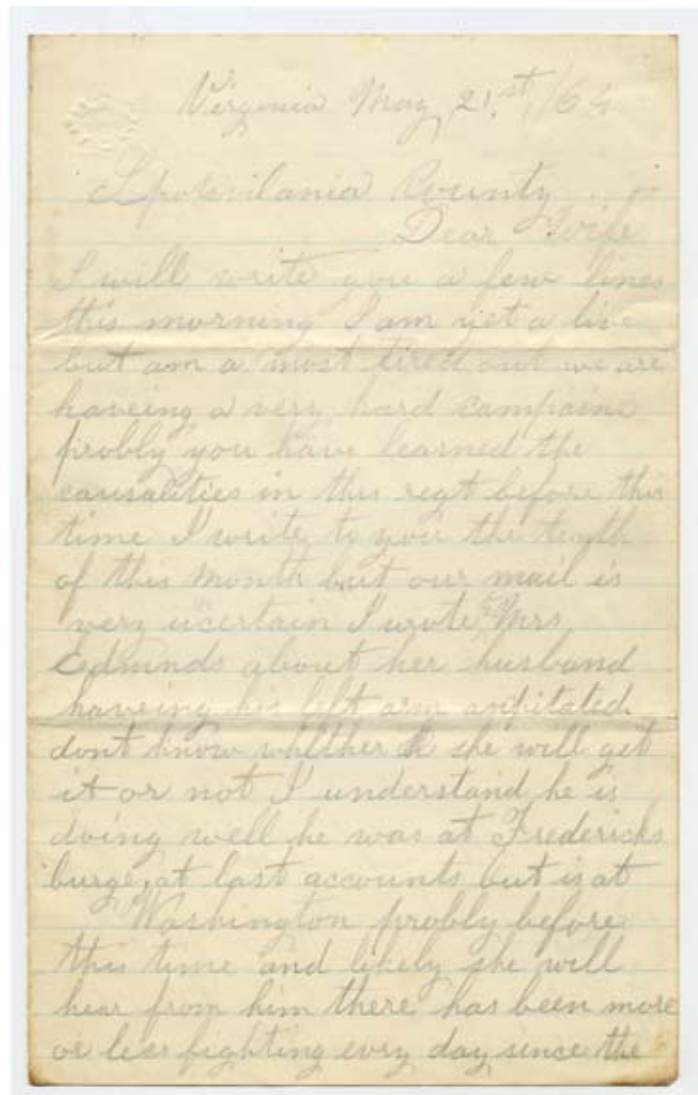 Virginia May 21.st /64
Spotsvilania County
Dear Wife
I will write you a few lines
this morning I am yet a live
but am a most tired out we are
haveing a very hard campaine
probly you have learned the
causalities in this regt before this
time I write to you the tenth
of this month but our mail is
very ucertain I wrote to Mrs
Edmunds about her husband
haveing his left arm anpitated
dont know whether she will get
it or not I understand he is
doing well he was at Fredericks
burge, at last accounts but is at
Washington probly before
this time and likely she will
hear from him there has been more
or less fighting evry day since the